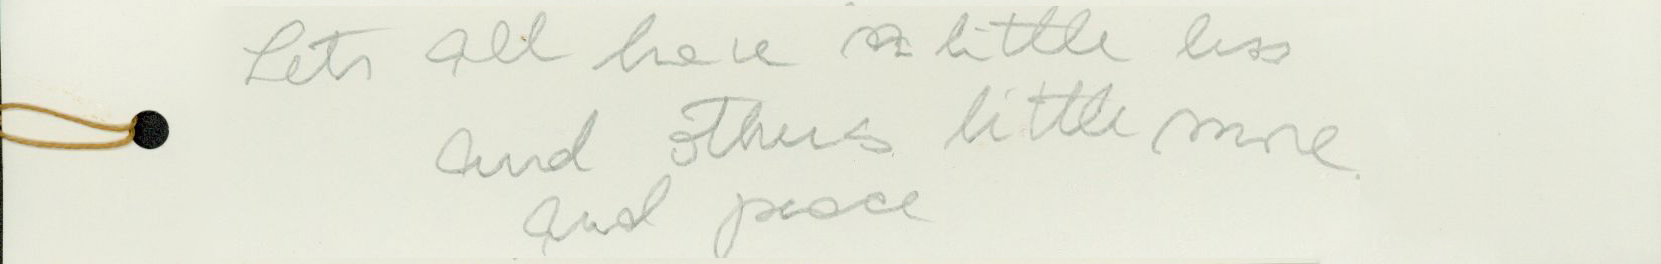 Lets all have a little less
and others little more
and peace